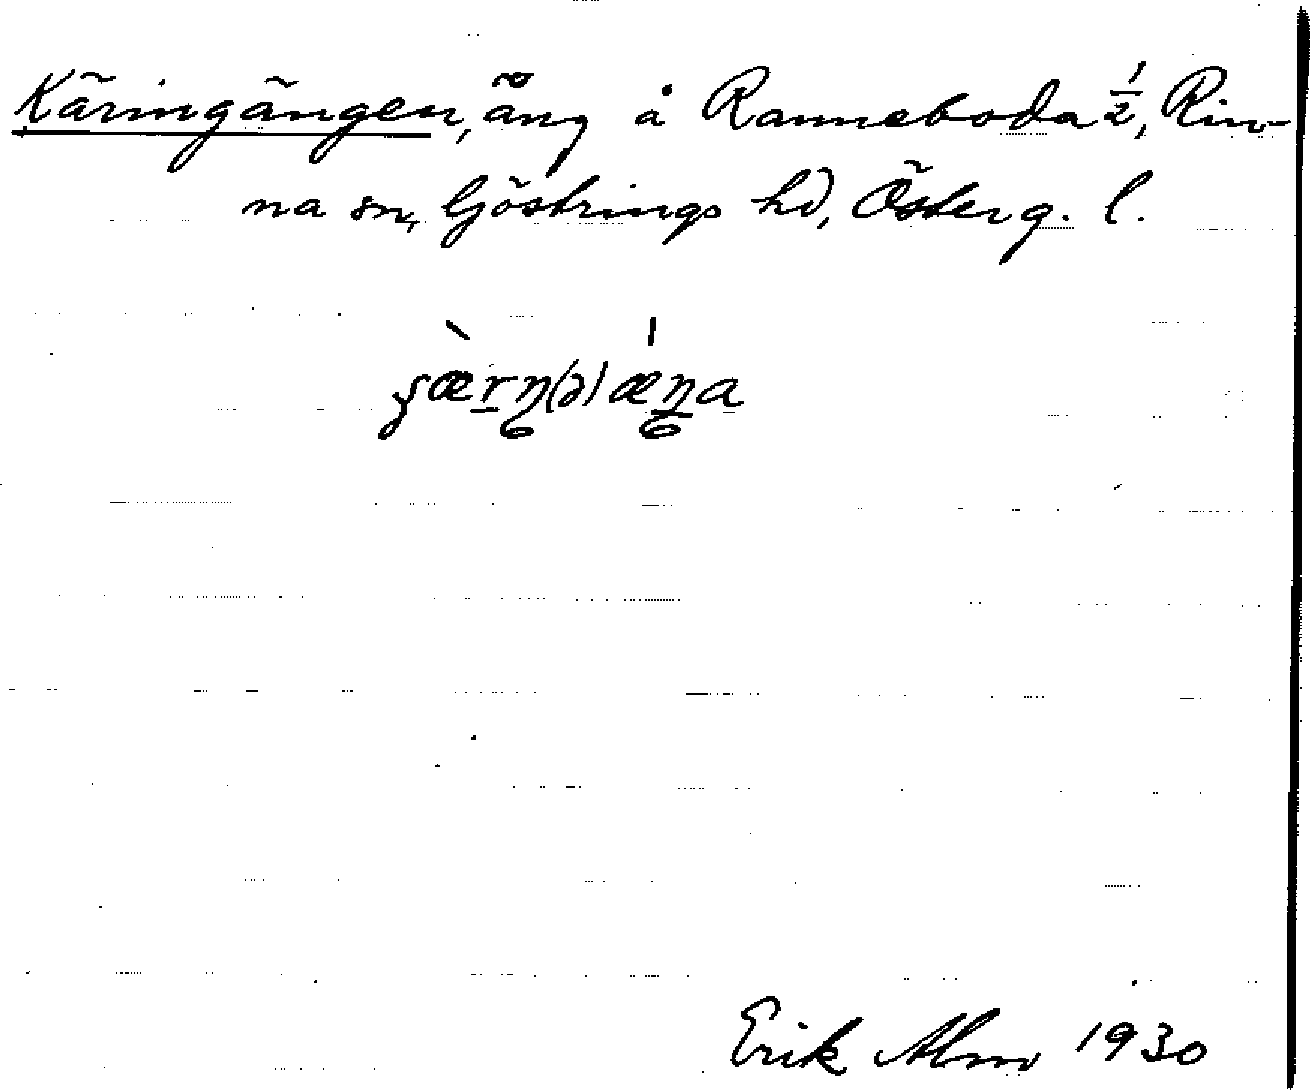 Käringängen, äng å Ranneboda 1/2, Rin-
na sn, Göstrings hd, Österg. l.
Erik Alm 1930